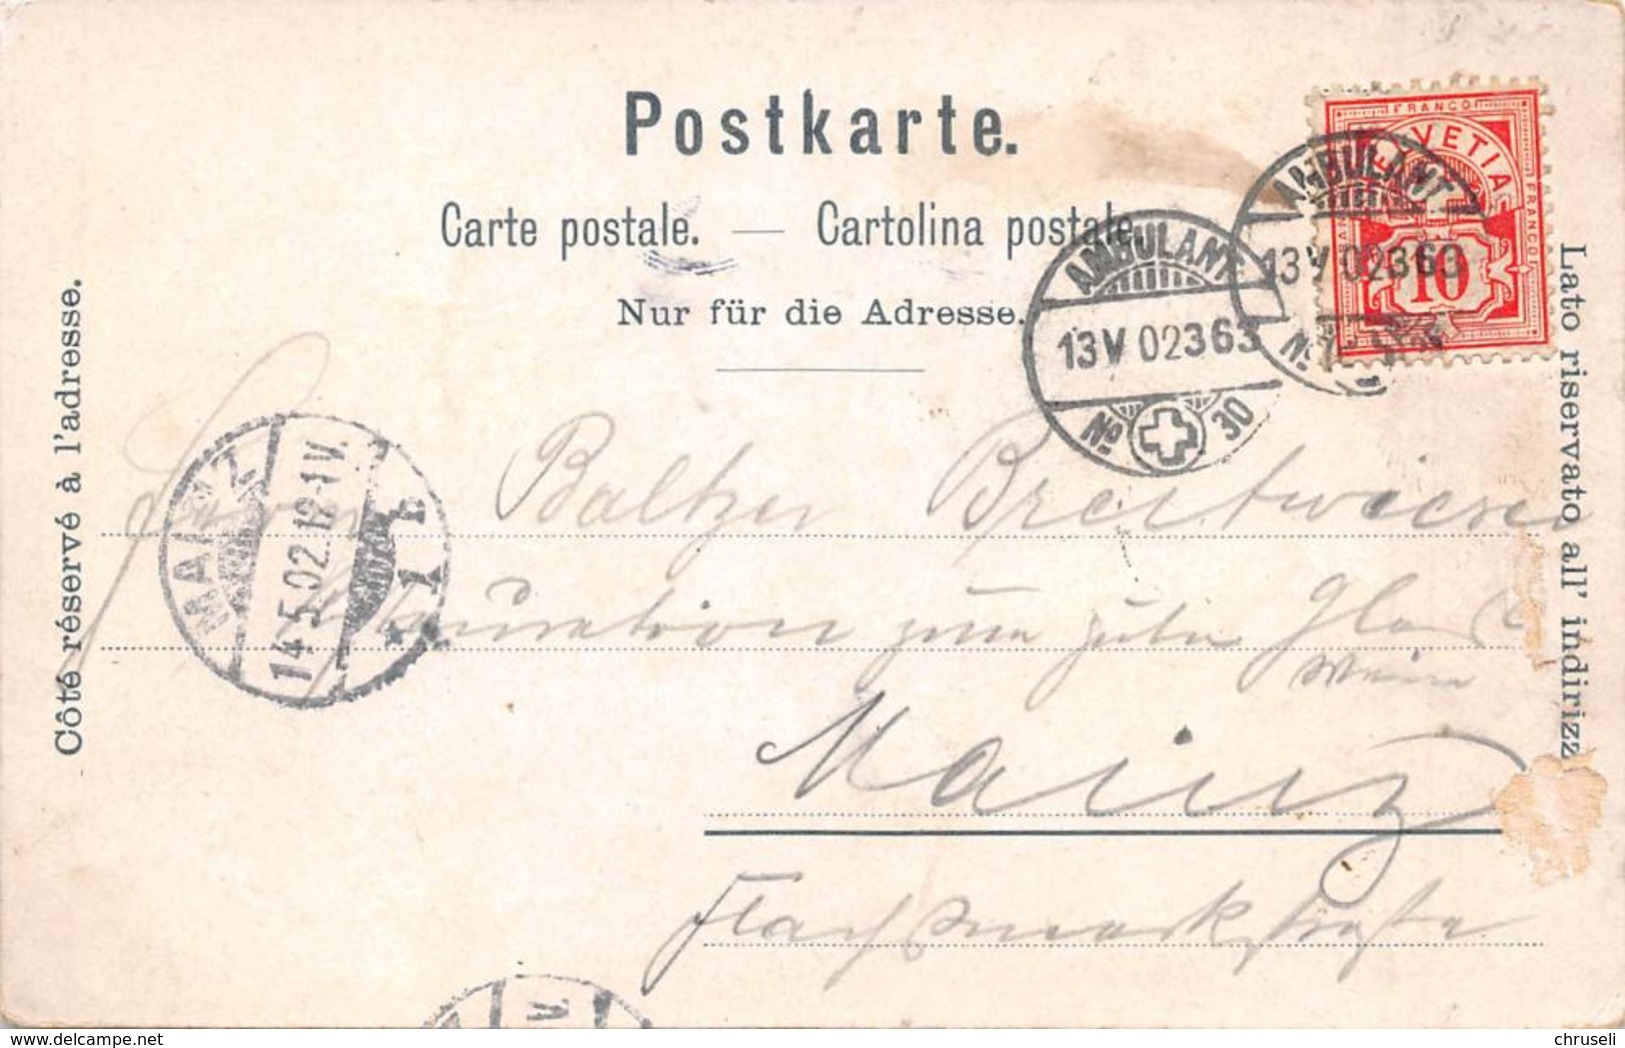 Postkarte.
Carte postale. — Cartolina postale.
Nur für die Adresse.
Côté réservé à l'adresse.
Lato riservato all' indirizz
FRANCO
HELVETIA
FRANCO
10
AMBULANT
13 V 02 363
No
AMBULANT
13 V 02 363
No 30
MAINZ
14.5.02.12-1V.
* 1 b
Herrn Baltzer Breitwieser
Restauration zum guten Glas
Wein
Mainz
Flachsmarkstraße
V.
delcampe.net
chruseli